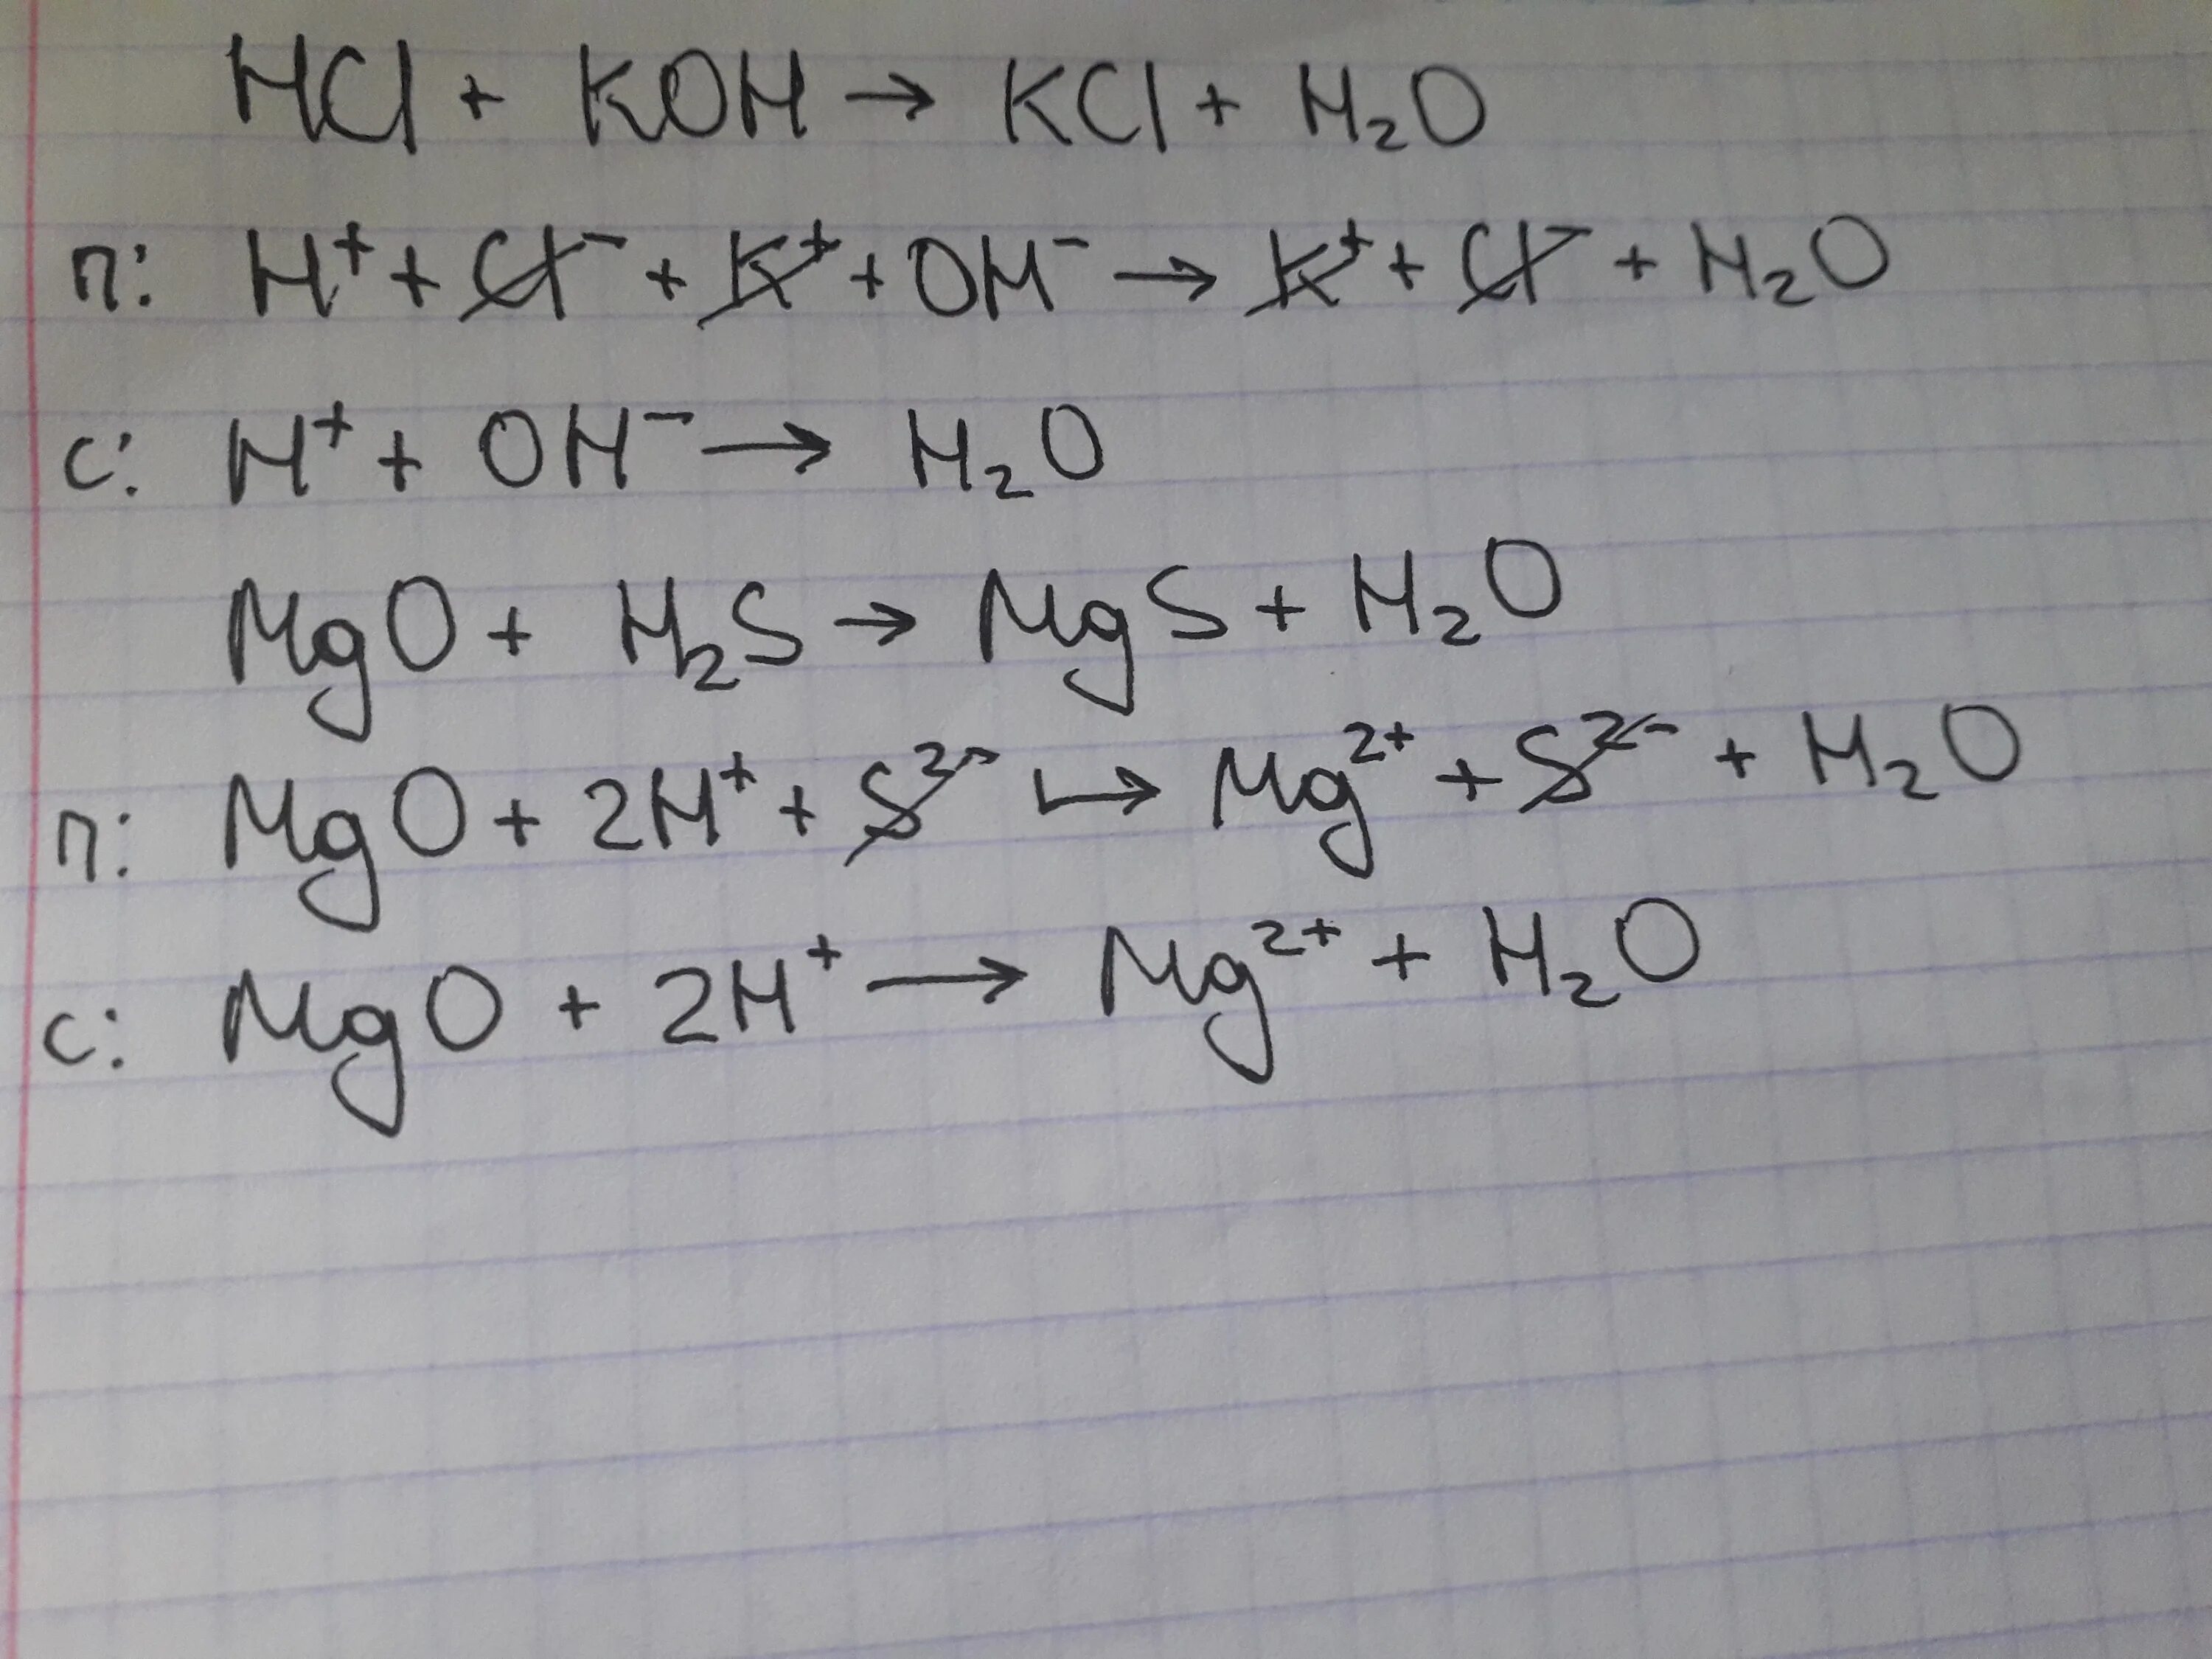 HCl + KOH → KCl + H₂O
п: H⁺ + Cl⁻ + K⁺ + OH⁻ → K⁺ + Cl⁻ + H₂O
с: H⁺ + OH⁻ → H₂O
MgO + H₂S → MgS + H₂O
п: MgO + 2H⁺ + S²⁻ → Mg²⁺ + S²⁻ + H₂O
с: MgO + 2H⁺ → Mg²⁺ + H₂O